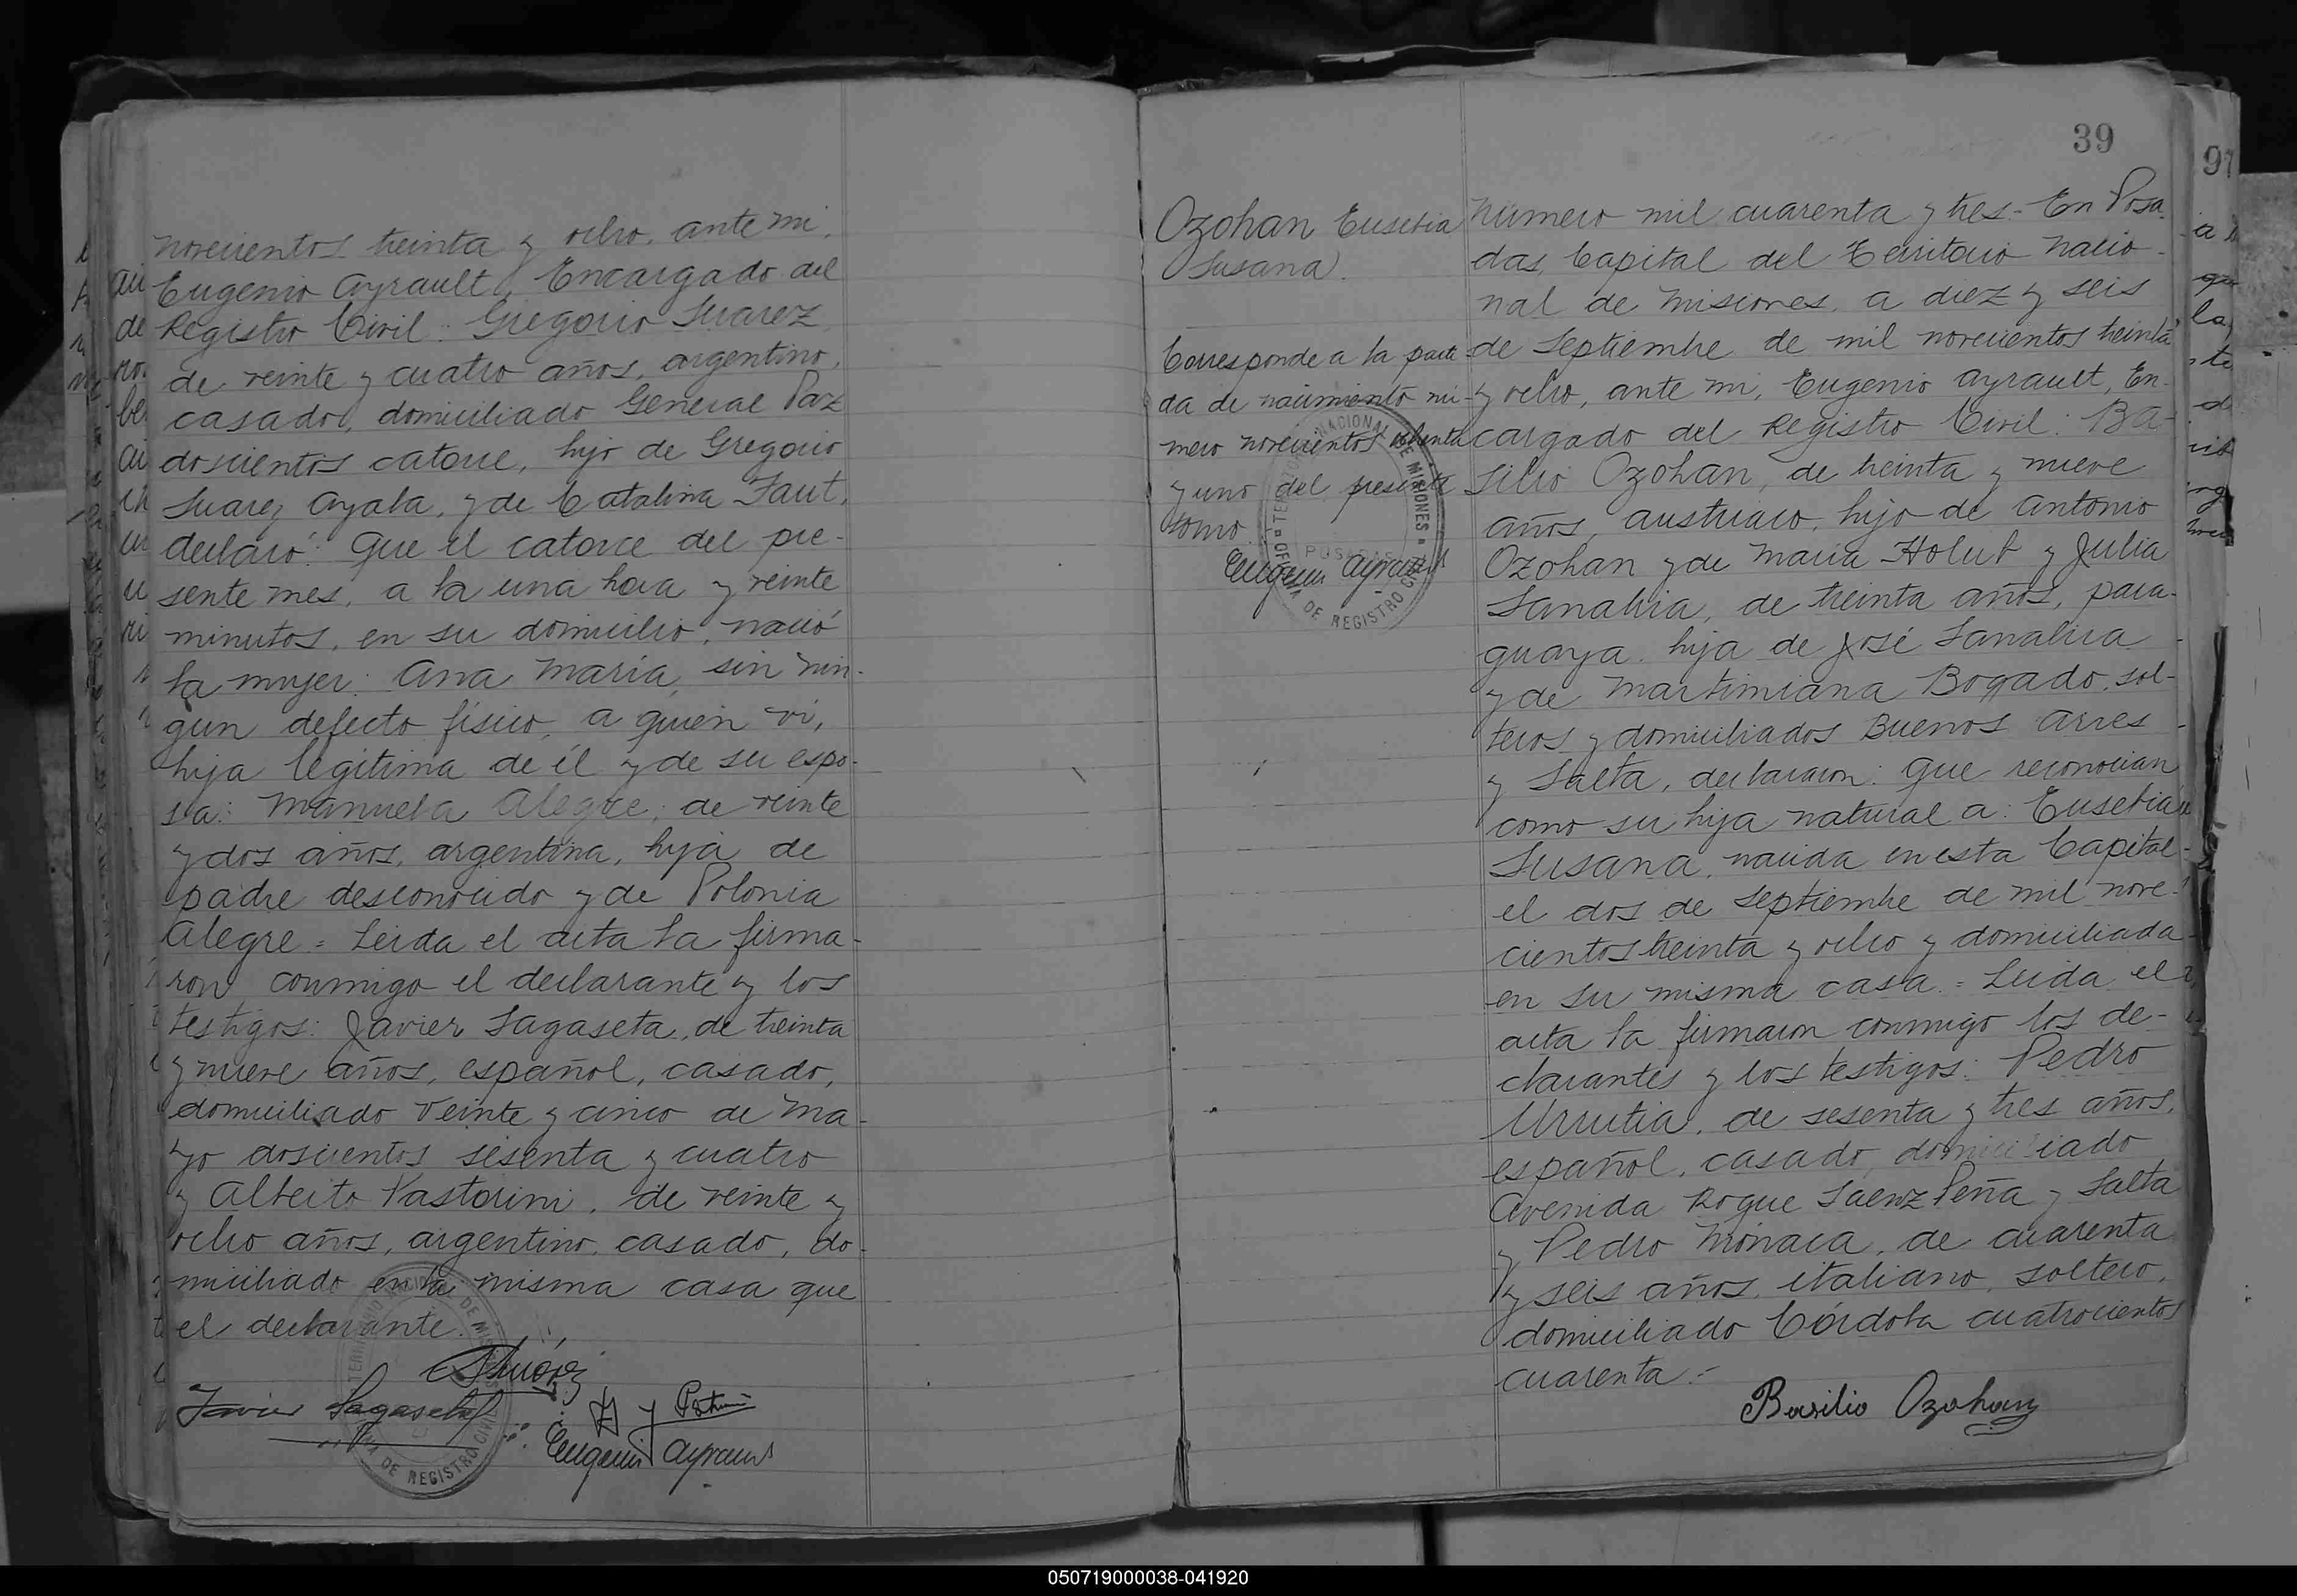 novecientos treinta y ocho, ante mi,
Eugenio Ayrault, Encargado del
Registro Civil: Gregorio Suarez
de veinte y cuatro años, argentino,
casado, domiciliado General Paz
doscientos catorce, hijo de Gregorio
Suarez Ayala, y de Catalina Faut,
declaró: Que el catorce del pre-
sente mes, a la una hora y veinte
minutos, en su domicilio, nació
la mujer: Ana Maria, sin nin-
gun defecto físico, a quien vi,
hija legitima de él y de su espo-
sa: Manuela Alegre, de veinte
y dos años, argentina, hija de
padre desconocido y de Polonia
Alegre = Leida el acta la firma-
ron conmigo el declarante y los
testigos: Javier Sagaseta, de treinta
y nueve años, español, casado,
domiciliado Veinte y cinco de Ma-
yo doscientos sesenta y cuatro
y Alberto Pastorini, de veinte y
ocho años, argentino, casado, do-
miciliado en la misma casa que
el declarante.
Javier Sagaseta
Eugenio Ayrault
39
97
Ozohan Eusebia
Susana).
Corresponde a la parti-
da de nacimiento nú-
mero novecientos ochenta
y uno del presente
tomo.
Eugenio Ayrault
POSADAS
OFICINA DE REGISTRO CIVIL
Número mil cuarenta y tres- En Posa-
das, Capital del Territorio Nacio-
nal de Misiones, a diez y seis
de Septiembre de mil novecientos treinta
y ocho, ante mi, Eugenio Ayrault, En-
cargado del Registro Civil: Ba-
silio Ozohan, de treinta y nueve
años, austriaco, hijo de Antonio
Ozohan y de Maria Holub y Julia
Sanabria, de treinta años, para-
guaya, hija de José Sanabria
y de Martimiana Bogado, sol-
teros y domiciliados Buenos Aires
y Salta, declararon: Que reconocian
como su hija natural a: Eusebia
Susana, nacida en esta Capital
el dos de Septiembre de mil nove-
cientos treinta y ocho y domiciliada
en su misma casa = Leida el
acta la firmaron conmigo los de-
clarantes y los testigos: Pedro
Urrutia, de sesenta y tres años,
español, casado, domiciliado
Avenida Roque Saenz Peña y Salta
y Pedro Mónaca, de cuarenta
y seis años, italiano, soltero,
domiciliado Córdoba cuatrocientos
cuarenta.-
Basilio Ozohan
050719000038-041920